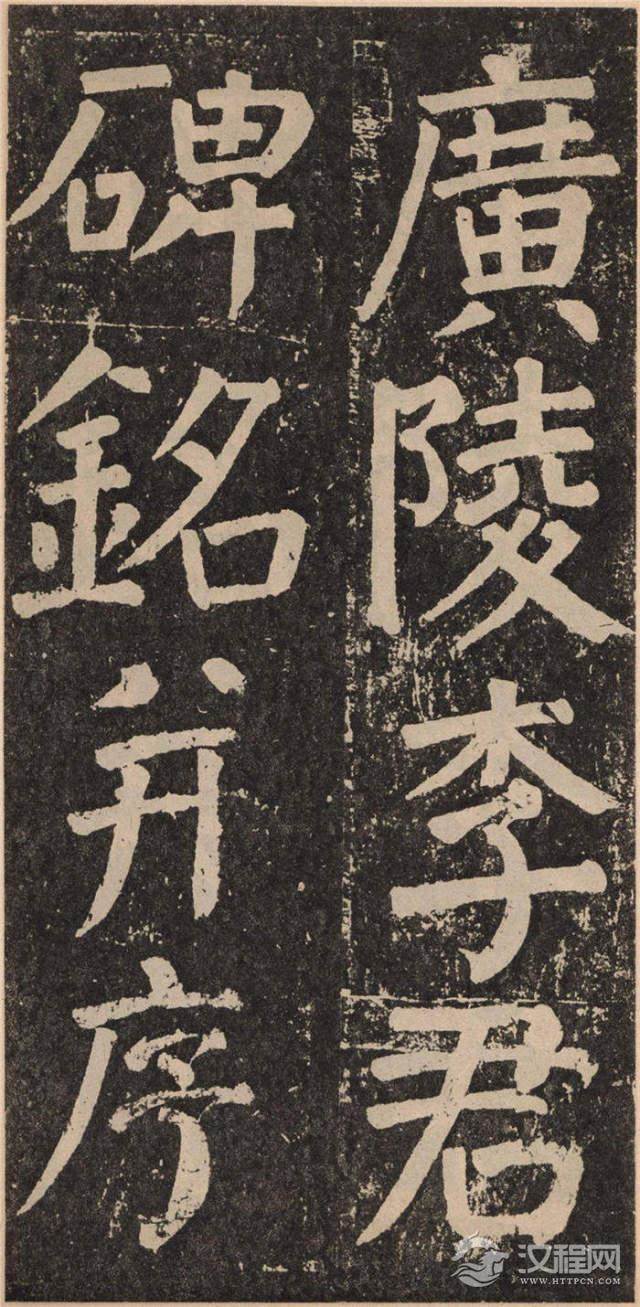 廣陵李君
碑銘并序
汉程网
WWW.HTTPCN.COM